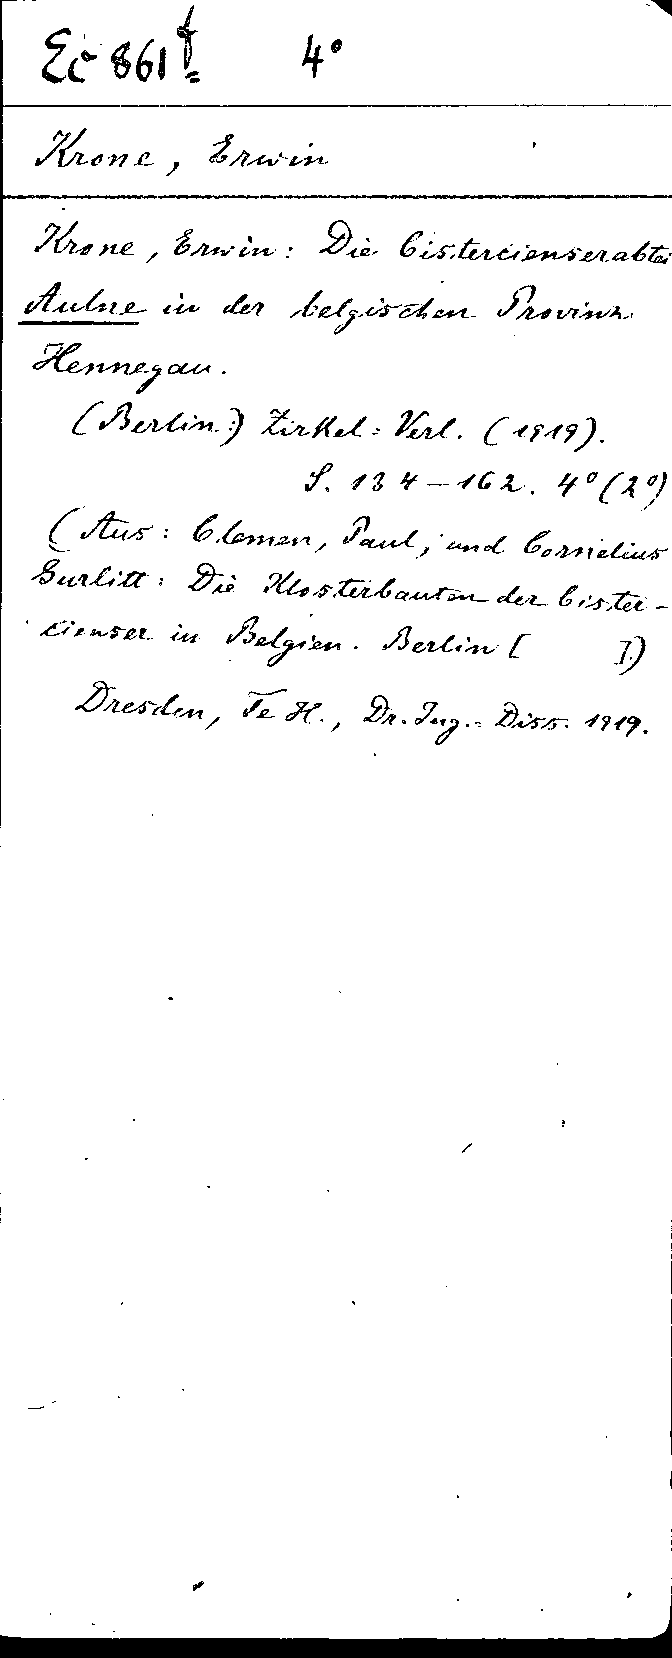 Ec 861 f 4°
Krone, Erwin
Krone, Erwin: Die Cistercienserabtei
Aulne in der belgischen Provinz
Hennegau.
(Berlin:) Zirkel-Verl. (1919).
S. 134-162. 4° (2°)
(Aus: Clemen, Paul, und Cornelius
Gurlitt: Die Klosterbauten der Cister-
cienser in Belgien. Berlin [ ].)
Dresden, Te H., Dr. Ing.-Diss. 1919.